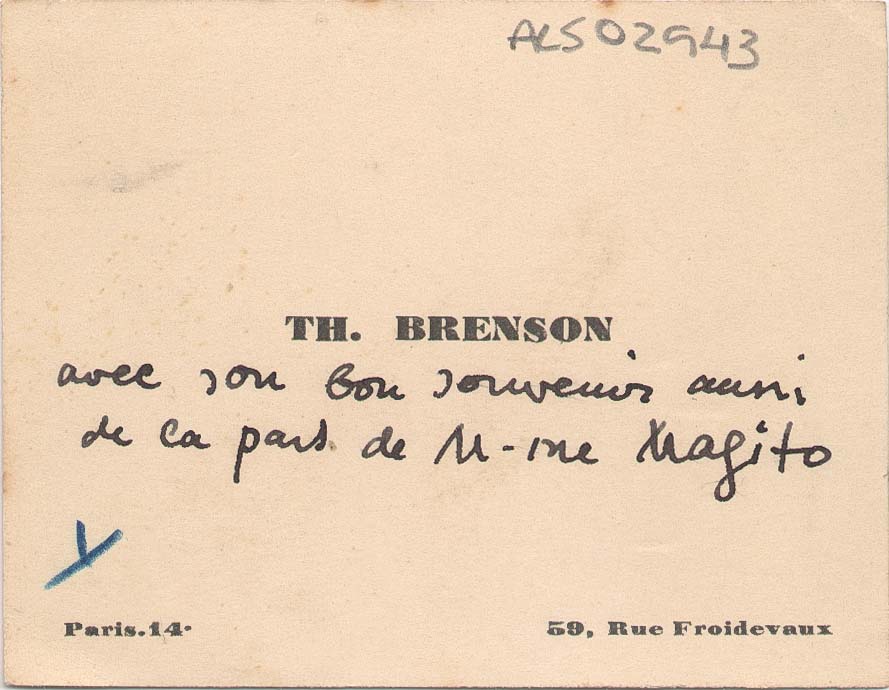 ALS02943
TH. BRENSON
avec son bon souvenir aussi
de la part de M-me Magito
Paris.14·
59, Rue Froidevaux